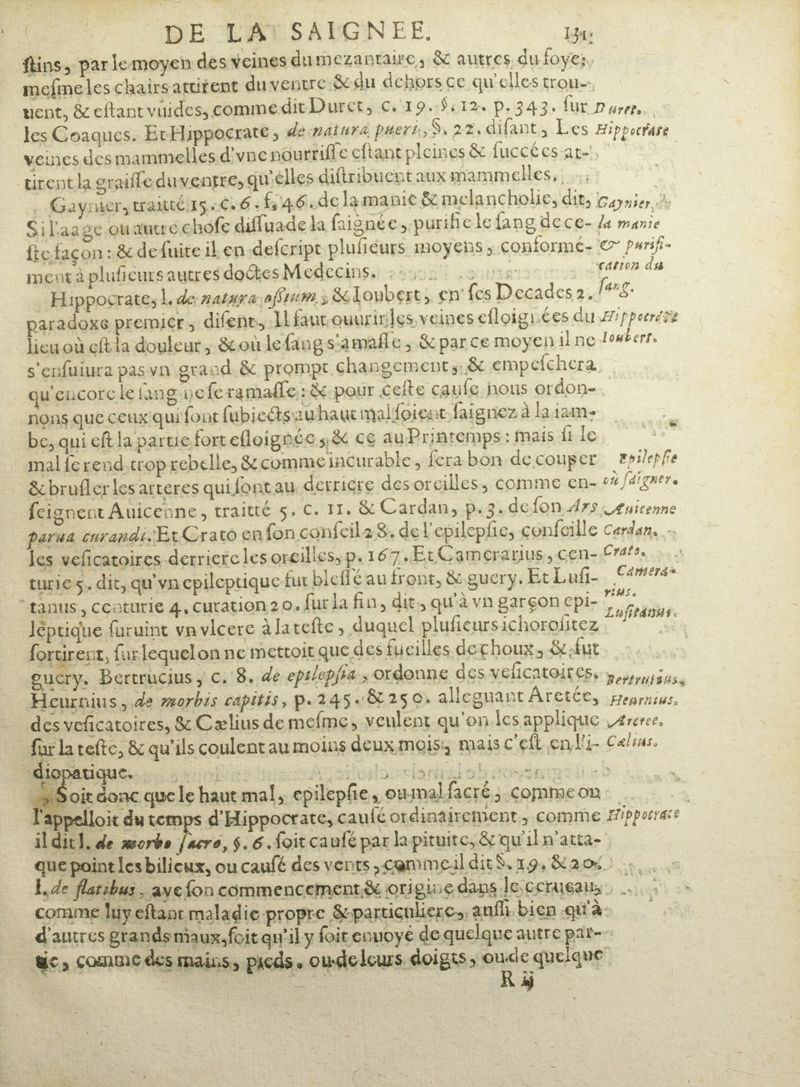 DE LA SAIGNEE. 131.
ſtins, par le moyen des veines du mezantaire, & autres du foye;
meſme les chairs attirent du ventre & du dehors ce qu'elles trou-
uent, & eſtant vuides, comme dit Duret, c. 19. §. 12. p. 343. ſur Duret.
les Coaques. Et Hippocrate, de natura pueri, §. 22. diſant, Les Hippocrate
veines des mammelles d'vne nourriſſe eſtant pleines & ſuccées at-
tirent la graiſſe du ventre, qu'elles diſtribuent aux mammelles.
Gaynier, traitté 15. c. 6. f. 46. de la manie & melancholie, dit, Gaynier,
Si l'aage ou autre choſe diſſuade la ſaignée, purifie le ſang de ce- la manie
ſte façon: & de ſuite il en deſcript pluſieurs moyens, conformé- & purifi-
ment à pluſieurs autres doctes Medecins. cation du
Hippocrate, l. de natura oſsium, & Ioubert, en ſes Decades 2. ſang.
paradoxe premier, diſent, Il faut ouurir les veines eſloignées du Hippocrate
lieu où eſt la douleur, & où le ſang s'amaſſe, & par ce moyen il ne Ioubert.
s'enſuiura pas vn grand & prompt changement, & empeſchera
qu'encore le ſang ne ſe ramaſſe: & pour ceſte cauſe nous ordon-
nons que ceux qui ſont ſubiects au haut mal ſoient ſaignez à la iam-
be, qui eſt la partie fort eſloignée, & ce au Printemps: mais ſi le
mal ſe rend trop rebelle, & comme incurable, ſera bon de couper Epilepſie
& bruſler les arteres qui ſont au derriere des oreilles, comme en- où ſaigner.
ſeignent Auicenne, traitté 5. c. 11. & Cardan, p. 3. de ſon Ars Auicenne
parua curandi. Et Crato en ſon conſeil 28. de l'epilepſie, conſeille Cardan.
les veſicatoires derriere les oreilles, p. 167. Et Camerarius, cen- Crato.
turie 5. dit, qu'vn epileptique fut bleſſé au front, & guery. Et Luſi- Camera-
tanus, centurie 4. curation 20. ſur la fin, dit, qu'à vn garçon epi- rius. Luſitanus.
leptique ſuruint vn vlcere à la teſte, duquel pluſieurs ichoroſitez
ſortirent, ſur lequel on ne mettoit que des fueilles de choux, & fut
guery. Bertrucius, c. 8. de epilepſia, ordonne des veſicatoires. Bertrutius.
Heurnius, de morbis capitis, p. 245. & 250. alleguant Aretée, Heurnius.
des veſicatoires, & Cælius de meſme, veulent qu'on les applique Aretee.
ſur la teſte, & qu'ils coulent au moins deux mois, mais c'eſt en l'i- Cælius.
diopatique.
Soit donc que le haut mal, epilepſie, ou mal ſacré, comme on
l'appelloit du temps d'Hippocrate, cauſé ordinairement, comme Hippocrate
il dit l. de morbo ſacro, §. 6. ſoit cauſé par la pituite, & qu'il n'atta-
que point les bilieux, ou cauſé des vents, comme il dit §. 19. & 20.
l. de flatibus, aye ſon commencement & origine dans le cerueau,
comme luy eſtant maladie propre & particuliere, auſſi bien qu'à
d'autres grands maux, ſoit qu'il y ſoit enuoyé de quelque autre par-
tie, comme des mains, pieds, ou de leurs doigts, ou de quelque
R ij